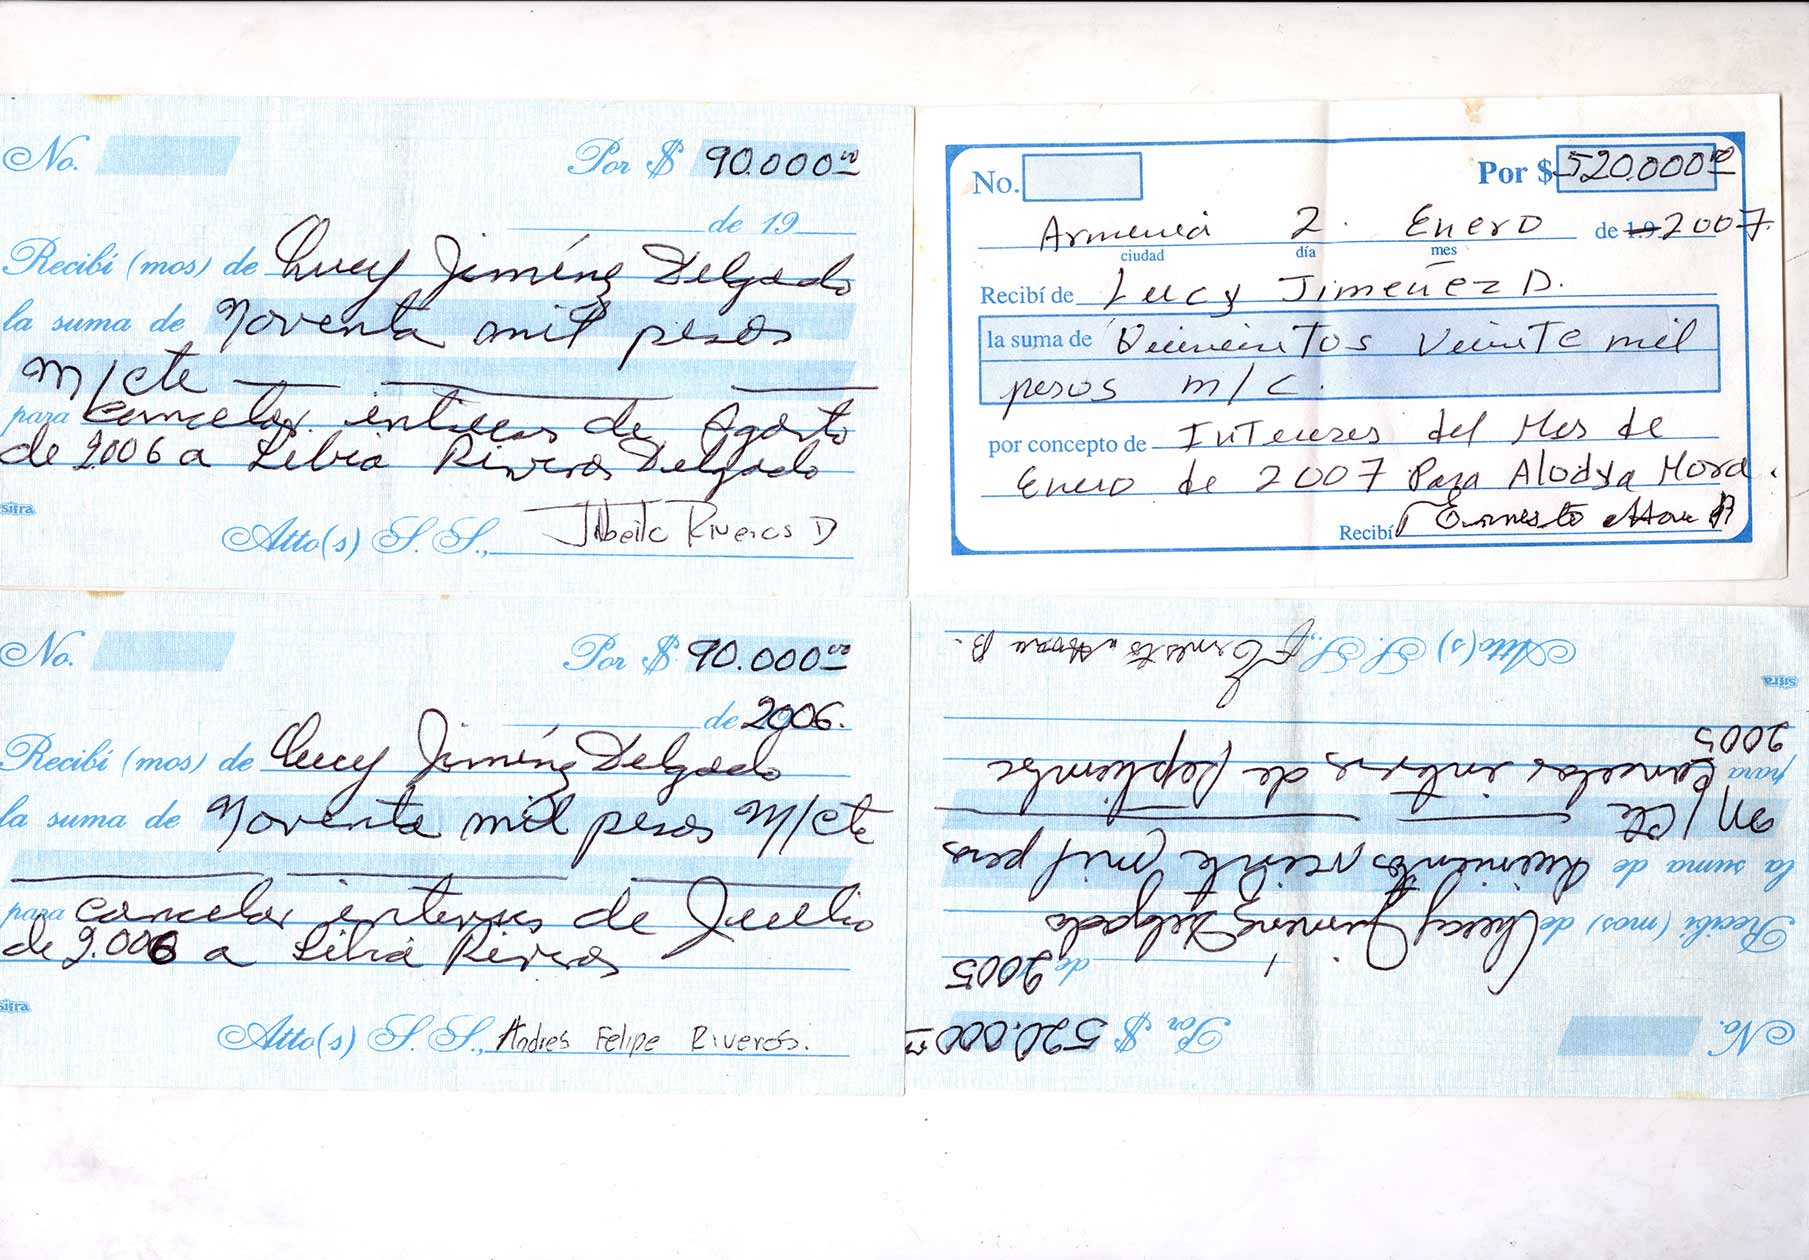 No. Por $ 90.000 00
de 19
Recibí (mos) de Lucy Jiménez Delgado
la suma de Noventa mil pesos
M/cte
para cancelar intereses de Agosto
de 2.006 a Libia Riveros Delgado
sifra
Atto(s) S. S., Riveros D
No. Por $ 520.000 00
Armenia 2. Enero de 19 2007.
ciudad día mes
Recibí de Lucy Jimenez D.
la suma de Quinientos Veinte mil
pesos m/c.
por concepto de Intereses del Mes de
Enero de 2007 Para Alodya Mora.
Recibí Ernesto
No. Por $ 90.000 00
de 2006.
Recibí (mos) de Lucy Jiménez Delgado
la suma de Noventa mil pesos M/cte
para cancelar intereses de Julio
de 2.006 a Libia Riveros
sifra
Atto(s) S. S., Andres Felipe Riveros.
No. Por $ 520.000 00
de 2005
Recibí (mos) de Lucy Jiménez Delgado
la suma de Quinientos veinte mil pesos
M/cte
para cancelar intereses de septiembre
2005
sifra
Atto(s) S. S., Ernesto B.